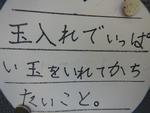 玉入れでいっぱ
い玉をいれてかち
たいこと。